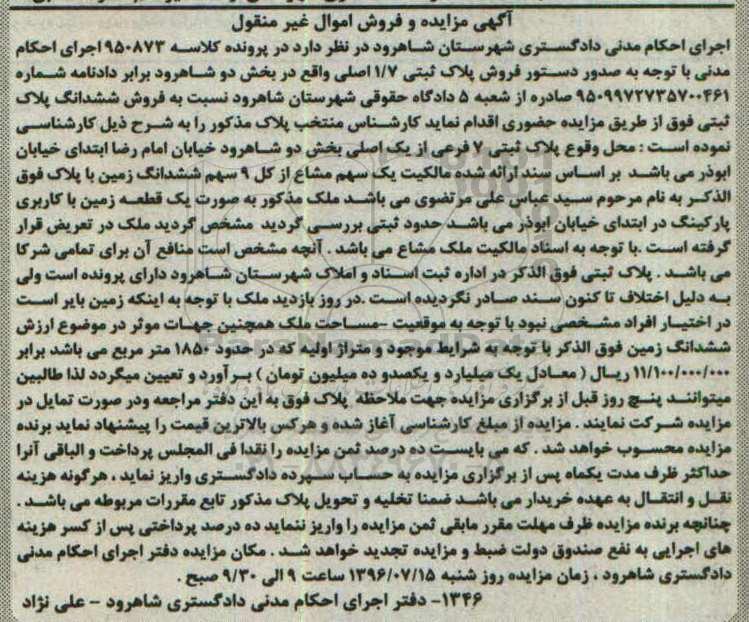 آگهی مزایده و فروش اموال غیر منقول
اجرای احکام مدنی دادگستری شهرستان شاهرود در نظر دارد در پرونده کلاسه ۹۵۰۸۷۳ اجرای احکام
مدنی با توجه به صدور دستور فروش پلاک ثبتی ۱/۷ اصلی واقع در بخش دو شاهرود برابر دادنامه شماره
۹۵۰۹۹۷۲۷۳۵۷۰۰۴۶۱ صادره از شعبه ۵ دادگاه حقوقی شهرستان شاهرود نسبت به فروش ششدانگ پلاک
ثبتی فوق از طریق مزایده حضوری اقدام نماید کارشناس منتخب پلاک مذکور را به شرح ذیل کارشناسی
نموده است : محل وقوع پلاک ثبتی ۷ فرعی از یک اصلی بخش دو شاهرود خیابان امام رضا ابتدای خیابان
ابوذر می باشد بر اساس سند ارائه شده مالکیت یک سهم مشاع از کل ۹ سهم ششدانگ زمین با پلاک فوق
الذکر به نام مرحوم سید عباس علی مرتضوی می باشد ملک مذکور به صورت یک قطعه زمین با کاربری
پارکینگ در ابتدای خیابان ابوذر می باشد حدود ثبتی بررسی گردید مشخص گردید ملک در تعریض قرار
گرفته است .با توجه به اسناد مالکیت ملک مشاع می باشد . آنچه مشخص است منافع آن برای تمامی شرکا
می باشد . پلاک ثبتی فوق الذکر در اداره ثبت اسناد و املاک شهرستان شاهرود دارای پرونده است ولی
به دلیل اختلاف تا کنون سند صادر نگردیده است .در روز بازدید ملک با توجه به اینکه زمین بایر است
در اختیار افراد مشخصی نبود با توجه به موقعیت -مساحت ملک همچنین جهات موثر در موضوع ارزش
ششدانگ زمین فوق الذکر با توجه به شرایط موجود و متراژ اولیه که در حدود ۱۸۵۰ متر مربع می باشد برابر
۱۱/۱۰۰/۰۰۰/۰۰۰ ریال ( معادل یک میلیارد و یکصدو ده میلیون تومان ) بر آورد و تعیین میگردد لذا طالبین
میتوانند پنج روز قبل از برگزاری مزایده جهت ملاحظه پلاک فوق به این دفتر مراجعه ودر صورت تمایل در
مزایده شرکت نمایند . مزایده از مبلغ کارشناسی آغاز شده و هرکس بالاترین قیمت را پیشنهاد نماید برنده
مزایده محسوب خواهد شد . که می بایست ده درصد ثمن مزایده را نقدا فی المجلس پرداخت و الباقی آنرا
حداکثر ظرف مدت یکماه پس از برگزاری مزایده به حساب سپرده دادگستری واریز نماید ، هرگونه هزینه
نقل و انتقال به عهده خریدار می باشد ضمنا تخلیه و تحویل پلاک مذکور تابع مقررات مربوطه می باشد .
چنانچه برنده مزایده ظرف مهلت مقرر مابقی ثمن مزایده را واریز ننماید ده درصد پرداختی پس از کسر هزینه
های اجرایی به نفع صندوق دولت ضبط و مزایده تجدید خواهد شد . مکان مزایده دفتر اجرای احکام مدنی
دادگستری شاهرود ، زمان مزایده روز شنبه ۱۳۹۶/۰۷/۱۵ ساعت ۹ الی ۹/۳۰ صبح .
۱۳۴۶- دفتر اجرای احکام مدنی دادگستری شاهرود - علی نژاد